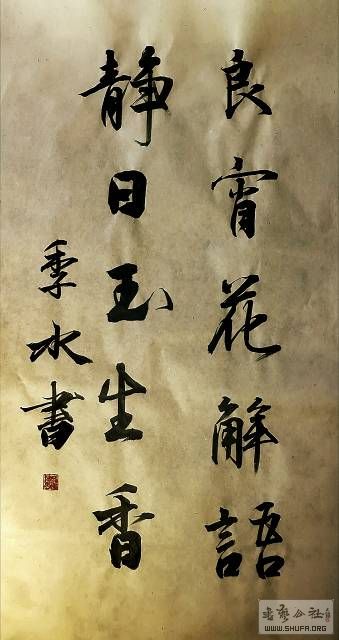 良宵花解語
静日玉生香
季水書
書法公社
WWW.SHUFA.ORG